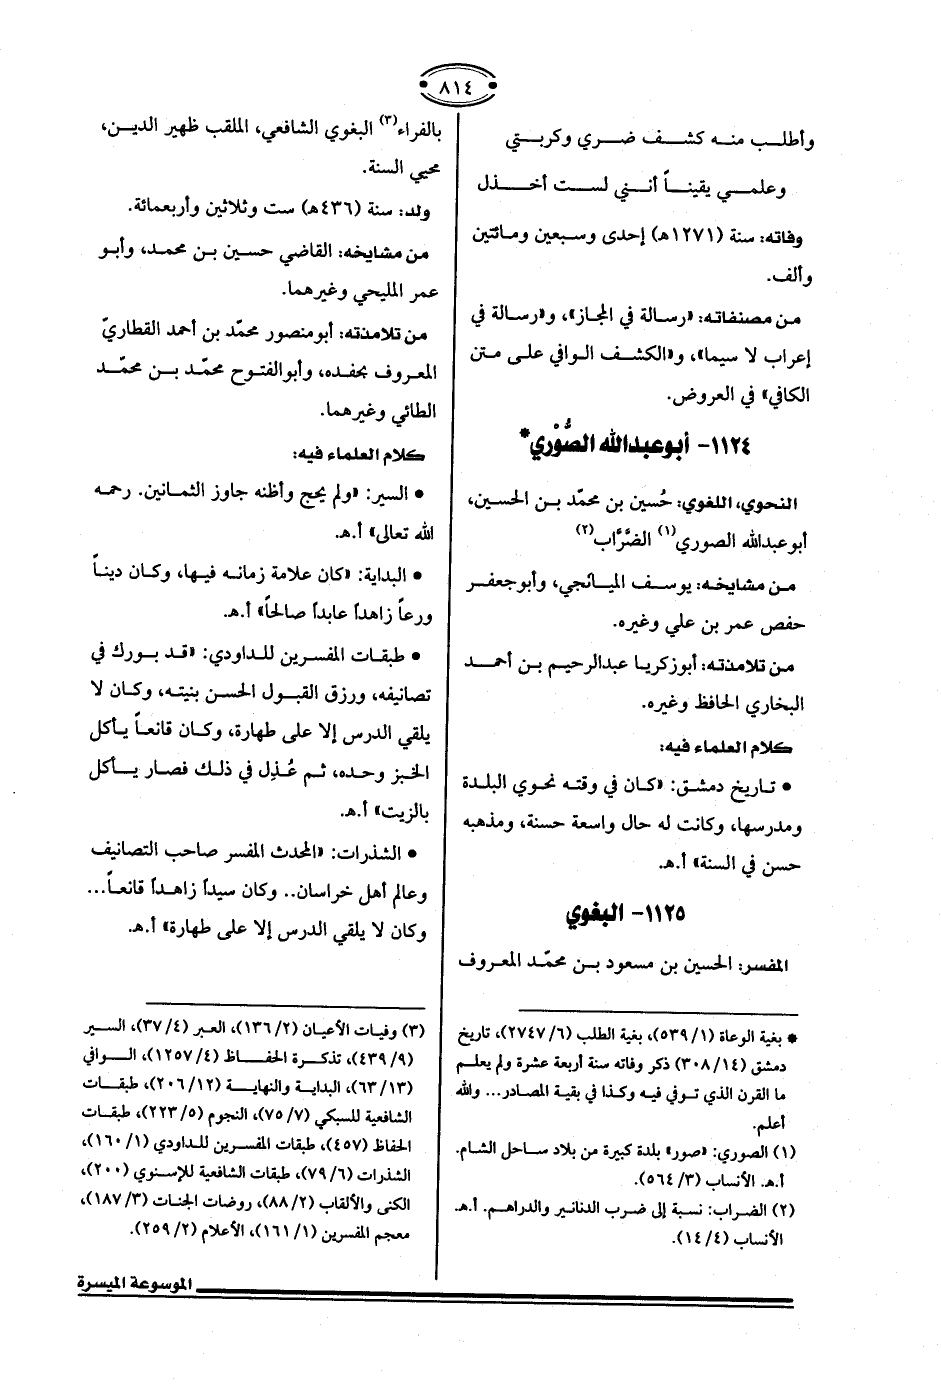 ٨١٤
وأطلب منه كشف ضري وكربتي
وعلمي يقيناً أنني لست أخذل
وفاته: سنة (١٢٧١هـ) إحدى وسبعين ومائتين
وألف.
من مصنفاته: «رسالة في المجاز»، و«رسالة في
إعراب لا سيما»، و«الكشف الوافي على متن
الكافي» في العروض.
١١٢٤- أبو عبدالله الصُّوْري*
النحوي، اللغوي: حُسين بن محمّد بن الحسين،
أبو عبدالله الصوري(١) الضَّرَّاب(٢)
من مشايخه: يوسف الميانجي، وأبو جعفر
حفص عمر بن علي وغيره.
من تلامذته: أبو زكريا عبدالرحيم بن أحمد
البخاري الحافظ وغيره.
كلام العلماء فيه:
• تاريخ دمشق: «كان في وقته نحوي البلدة
ومدرسها، وكانت له حال واسعة حسنة، ومذهبه
حسن في السنة» أ.هـ.
١١٢٥- البغوي
المفسر: الحسين بن مسعود بن محمّد المعروف
* بغية الوعاة (١/ ٥٣٩)، بغية الطلب (٦/ ٢٧٤٧)، تاريخ
دمشق (١٤/ ٣٠٨) ذكر وفاته سنة أربعة عشرة ولم يعلم
ما القرن الذي توفي فيه وكذا في بقية المصادر... والله
أعلم.
(١) الصوري: «صور» بلدة كبيرة من بلاد ساحل الشام.
أ.هـ. الأنساب (٣/ ٥٦٤).
(٢) الضراب: نسبة إلى ضرب الدنانير والدراهم. أ.هـ.
الأنساب (٤/ ١٤).
بالفراء(٣) البغوي الشافعي، الملقب ظهير الدين،
محيي السنة.
ولد: سنة (٤٣٦هـ) ست وثلاثين وأربعمائة.
من مشايخه: القاضي حسين بن محمد، وأبو
عمر المليحي وغيرهما.
من تلامذته: أبو منصور محمّد بن أحمد القطاريّ
المعروف بحفده، وأبو الفتوح محمّد بن محمّد
الطائي وغيرهما.
كلام العلماء فيه:
• السير: «ولم يحج وأظنه جاوز الثمانين. رحمه
الله تعالى» أ.هـ.
• البداية: «كان علامة زمانه فيها، وكان ديناً
ورعاً زاهداً عابداً صالحاً» أ.هـ.
• طبقات المفسرين للداودي: «قد بورك في
تصانيفه، ورزق القبول الحسن بنيته، وكان لا
يلقي الدرس إلا على طهارة، وكان قانعاً يأكل
الخبز وحده، ثم عُذِل في ذلك فصار يأكل
بالزيت» أ.هـ.
• الشذرات: «المحدث المفسر صاحب التصانيف
وعالم أهل خراسان.. وكان سيداً زاهداً قانعاً...
وكان لا يلقي الدرس إلا على طهارة» أ.هـ.
(٣) وفيات الأعيان (٢/ ١٣٦)، العبر (٤/ ٣٧)، السير
(٩/ ٤٣٩)، تذكرة الحفاظ (٤/ ١٢٥٧)، الوافي
(١٣/ ٦٣)، البداية والنهاية (١٢/ ٢٠٦)، طبقات
الشافعية للسبكي (٧/ ٧٥)، النجوم (٥/ ٢٢٣)، طبقات
الحفاظ (٤٥٧)، طبقات المفسرين للداودي (١/ ١٦٠)،
الشذرات (٦/ ٧٩)، طبقات الشافعية للإسنوي (٢٠٠)،
الكنى والألقاب (٢/ ٨٨)، روضات الجنات (٣/ ١٨٧)،
معجم المفسرين (١/ ١٦١)، الأعلام (٢/ ٢٥٩).
الموسوعة الميسرة